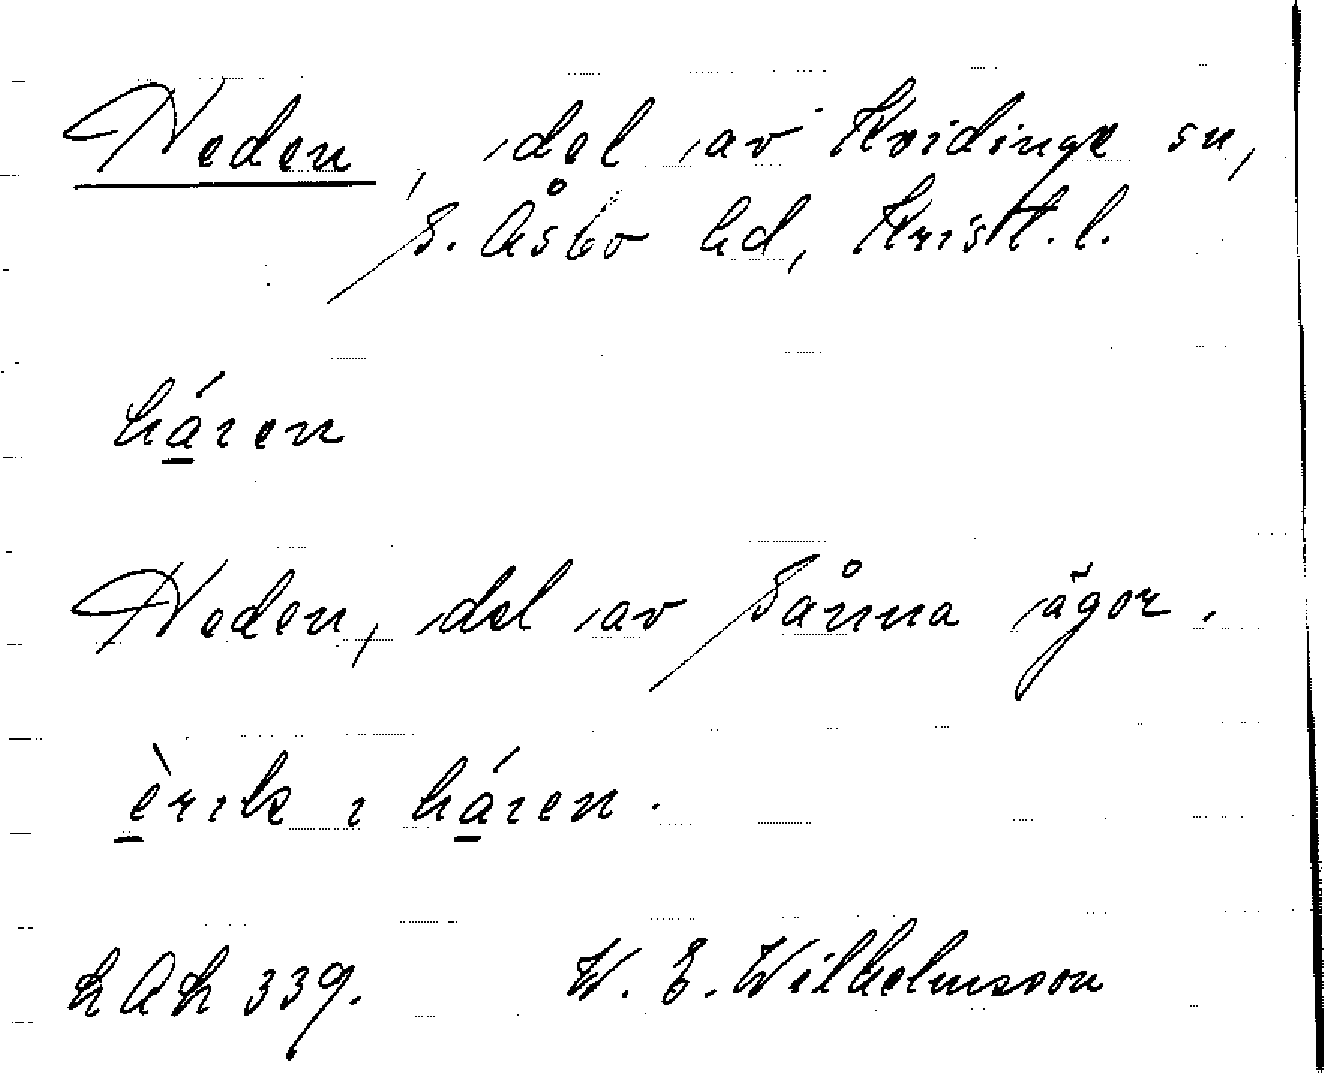 Heden, del av Kvidinge sn,
S. Åsbo hd, Krist. l.
háren
Heden, del av Sånna ägor.
èrik i háren.
LAL 339. W. E. Wilhelmsson